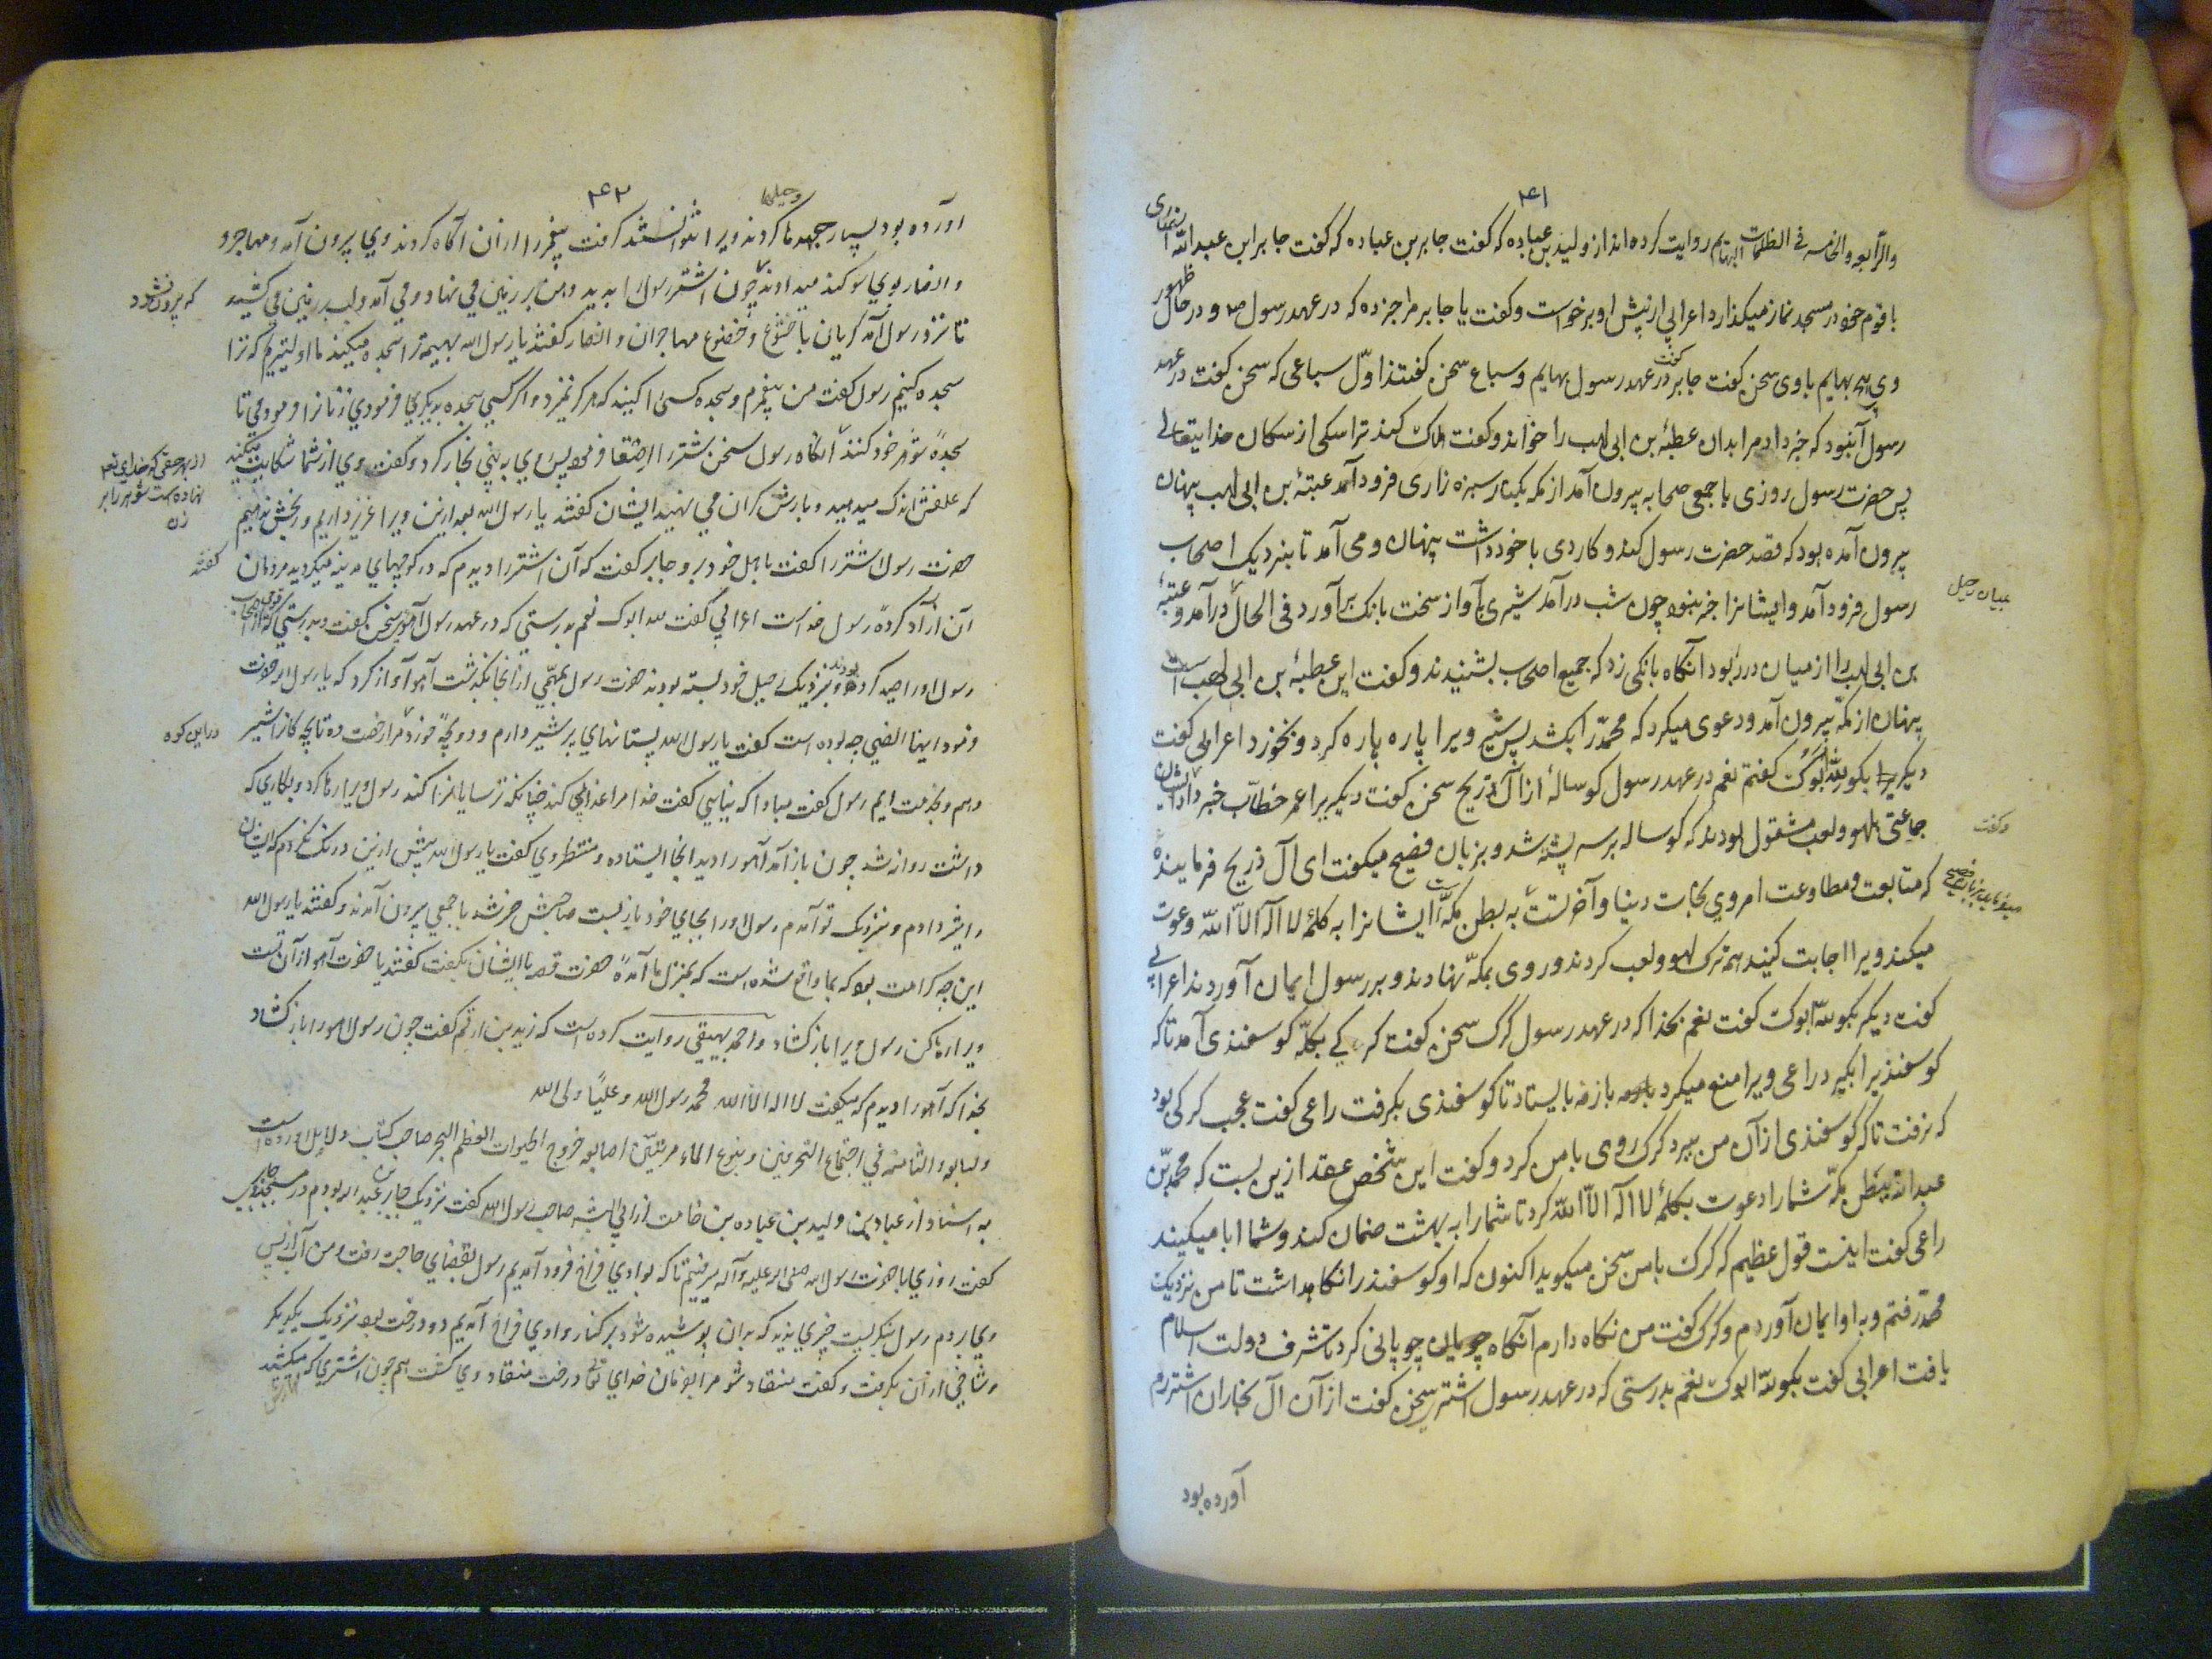 ۴۱
والرابعه والخامسه فی الظلمات البهایم روایت کرده اند از ولید بن عباده که گفت جابر بن عباده که گفت جابر ابن عبدالله
با قوم خود در مسجد نماز میگذارد اعرابی از پیش او برخواست و گفت یا جابر مرا خبر ده که در عهد رسول ص و در حال
ظهور
وی بهایم باوی سخن گفت جابر گفت در عهد رسول بهایم و سباع سخن گفتند اول سباعی که سخن گفت در عهد
رسول آنبود که خبر داد مرا بدان عطبهٔ بن ابی لهب را خواند و گفت هلاک کند ترا سگی از سگان خدایتعالی
پس حضرت رسول روزی با جمعی صحابه بیرون آمد از مکه بکنار سبزه زاری فرود آمد عتبهٔ بن ابی لهب پنهان
بیرون آمده بود که قصد حضرت رسول کند و کاردی با خود داشت پنهان و می آمد تا بنزدیک اصحاب
رسول فرود آمد و ایشانرا خبر نبود چون شب درآمد شیری بآواز سخت بانگ برآورد فی الحال درآمد و عتبهٔ
بن ابی لهب را از میان در ربود آنگاه بانگی زد که جمیع اصحاب بشنیدند و گفت این عطبهٔ بن ابی لهب است
پنهان از مکه بیرون آمد و دعوی میکرد که محمد را بکشد پس شیر ویرا پاره پاره کرد و نخورد اعرابی گفت
دیگر بگو لله ابوک گفتم نعم در عهد رسول گوسالهٔ از آل ذریح سخن گفت دیگر برا عمر خطاب خبر داد ایشان
جماعتی بلهو و لعب مشغول بودند که گوساله بر سر پشته شد و بزبان فصیح میگفت ای آل ذریح
که متابعت و مطاوعت امر وی نجات دنیا و آخرتست به بطن مکه ایشانرا به کلمهٔ لا اله الا الله دعوت
میکند ویرا اجابت کنید همه ترک لهو و لعب کردند و روی بمکه نهادند و بر رسول ایمان آوردند اعرابی
گفت دیگر بگو لله ابوک گفت نعم بخدا که در عهد رسول گرگ سخن گفت گرگی بگلهٔ گوسفندی آمد تا که
گوسفندی را بگیرد راعی ویرا منع میکرد باز می بایستاد تا گوسفندی بگرفت راعی گفت عجب گرگی بود
که نرفت تا که گوسفندی از آن من ببرد گرگ روی با من کرد و گفت این شخص عقد ازین بست که محمد بن
عبدالله ببطن مکه شما را دعوت بکلمهٔ لا اله الا الله کرد تا شما را به بهشت ضمان کند و شما ابا میکنید
راعی گفت اینست قول عظیم که گرگ با من سخن میگوید اکنون که او گوسفند را نگاه داشت تا من نزدیک
محمد رفتم و باو ایمان آوردم و گرگ گفت من نگاه دارم آنگاه چوپانی کرد تا شرف دولت اسلام
یافت اعرابی گفت بگو لله ابوک نعم بدرستی که در عهد رسول اشتر سخن گفت از آن آل نجار آن اشتر رم
آورده بود
و گفت
۴۲
آورده بود بسیار جهدها کردند ویرا نتوانستند گرفت پیغمبر را از آن آگاه کردند وی بیرون آمد و مهاجر و
و حیلها
و انصار بوی سوگند میدادند چون اشتر رسول را بدید دهن بر زمین می نهاد و می آمد و لب بر زمین می کشید
که بیرون نشود
تا نزد رسول آمد گریان با خشوع و خضوع مهاجران و انصار گفتند یا رسول الله بهیمه ترا سجده میکند ما اولیتریم که ترا
سجده کنیم رسول گفت من پیغمبرم و سجده کسی را کنید که هرگز نمیرد و اگر کسی سجده بدیگری فرمودی زنانرا فرمودمی تا
سجدهٔ شوهر خود کنند آنگاه رسول سخن شتر را اصغا فرمود پس وی به بنی نجار کرد و گفت وی از شما شکایت میکند
از بهر حقی که خدای تعالی نهاده است شوهر را بر زن
که علفش اندک میدهید و بارش گران می نهید ایشان گفتند یا رسول الله بعد ازین ویرا عزیز داریم و رنجش ندهیم
حضرت رسول اشتر را گفت با اهل خود برو جابر گفت که آن اشتر را دیدم که در کوچهای مدینه میگردید مردمان
گفتند
آن آزاد کردهٔ رسول خداست اعرابی گفت لله ابوک نعم بدرستی که در عهد رسول آهو سخن گفت و بدرستی که قومی از اصحاب
رسول او را صید کرده بودند و نزدیک رحیل خود بسته بودند حضرت رسول بمهمی از آنجا بگذشت آهو آواز کرد که یا رسول الله حضرت
فرمود ایها الظبی چه بوده است گفت یا رسول الله پستانهای پر شیر دارم و دو بچهٔ خورد مرا رخصت ده تا بچه گانرا شیر
در این کوه
دهم و بخدمت آیم رسول گفت مبادا که نیایی گفت خدا مرا عذابی کند چنانکه ترسایانرا کند رسول ویرا رها کرد و بکاری که
داشت روانه شد چون باز آمد آهو را دید آنجا ایستاده و منتظر وی گفت یا رسول الله پیش ازین درنگ نکردم که ایشان
را شیر دادم و نزدیک تو آمدم رسول او را بجای خود باز بست صاحبش خبر شد با جمعی بیرون آمدند و گفتند یا رسول الله
این چه کرامت بود که بما واقع شده است که بمنزل ما آمدهٔ حضرت قصه با ایشان بگفت گفتند یا حضرت آهو از آن تست
ویرا رها کن رسول ویرا باز گشاد و احمد بیهقی روایت کرده است که زید بن ارقم گفت چون رسول آهو را باز گشاد
بخدا که آهو را دیدم که میگفت لا اله الا الله محمد رسول الله و علیا ولی الله
والسابعه والثامنه فی اجتماع الشجرتین و ینبوع الماء مرتین اصابعه خروج الحیوان العظیم البحر صاحب کتاب دلایل آورده است
به اسناد از عباد بن ولید بن عباده بن صامت از ابی الیشر صاحب رسول الله گفت نزدیک جابر بن عبدالله بودم در مسجد
گفت روزی با حضرت رسول الله صلی الله علیه وآله میرفتیم تا که بوادی فراخ فرود آمدیم رسول بقضای حاجت رفت و من آب از پس
وی بردم رسول بنگریست چیزی ندید که بدان پوشیده شود بر کنار وادی فراخ آمدیم دو درخت بود نزدیک یکدیگر
و شاخی از آن بگرفت و گفت منقاد شو مرا بفرمان خدای تعالی درخت منقاد وی گشت هم چون اشتری که میکشند